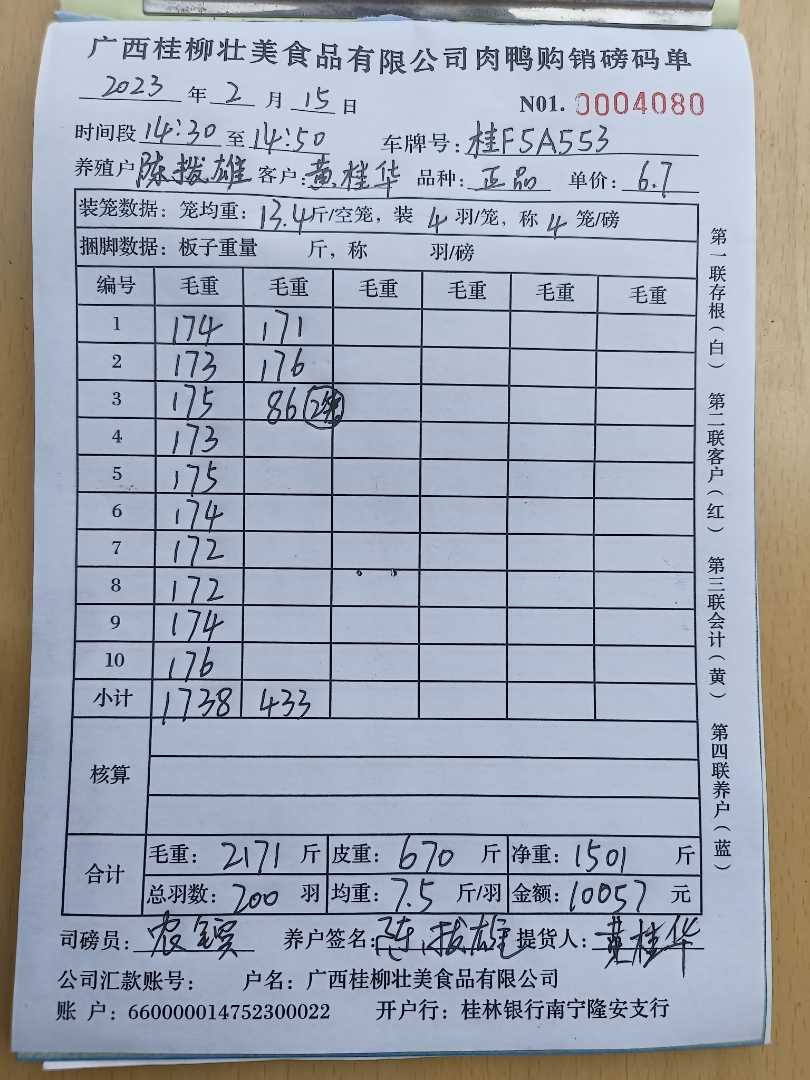 广西桂柳壮美食品有限公司肉鸭购销磅码单
2023 年 2 月 15 日 N01. 0004080
时间段 14:30 至 14:50 车牌号: 桂F5A553
养殖户 陈拨雄 客户: 黄桂华 品种: 正品 单价: 6.7
装笼数据: 笼均重: 13.4 斤/空笼, 装 4 羽/笼, 称 4 笼/磅
捆脚数据: 板子重量 斤, 称 羽/磅
编号 毛重 毛重 毛重 毛重 毛重 毛重
1 174 171
2 173 176
3 175 86 2笼
4 173
5 175
6 174
7 172
8 172
9 174
10 176
小计 1738 433
核算
合计
毛重: 2171 斤 皮重: 670 斤 净重: 1501 斤
总羽数: 200 羽 均重: 7.5 斤/羽 金额: 10057 元
司磅员: 农 养户签名: 陈拨雄 提货人: 黄桂华
公司汇款账号: 户名: 广西桂柳壮美食品有限公司
账 户: 660000014752300022 开户行: 桂林银行南宁隆安支行
第一联存根(白) 第二联客户(红) 第三联会计(黄) 第四联养户(蓝)